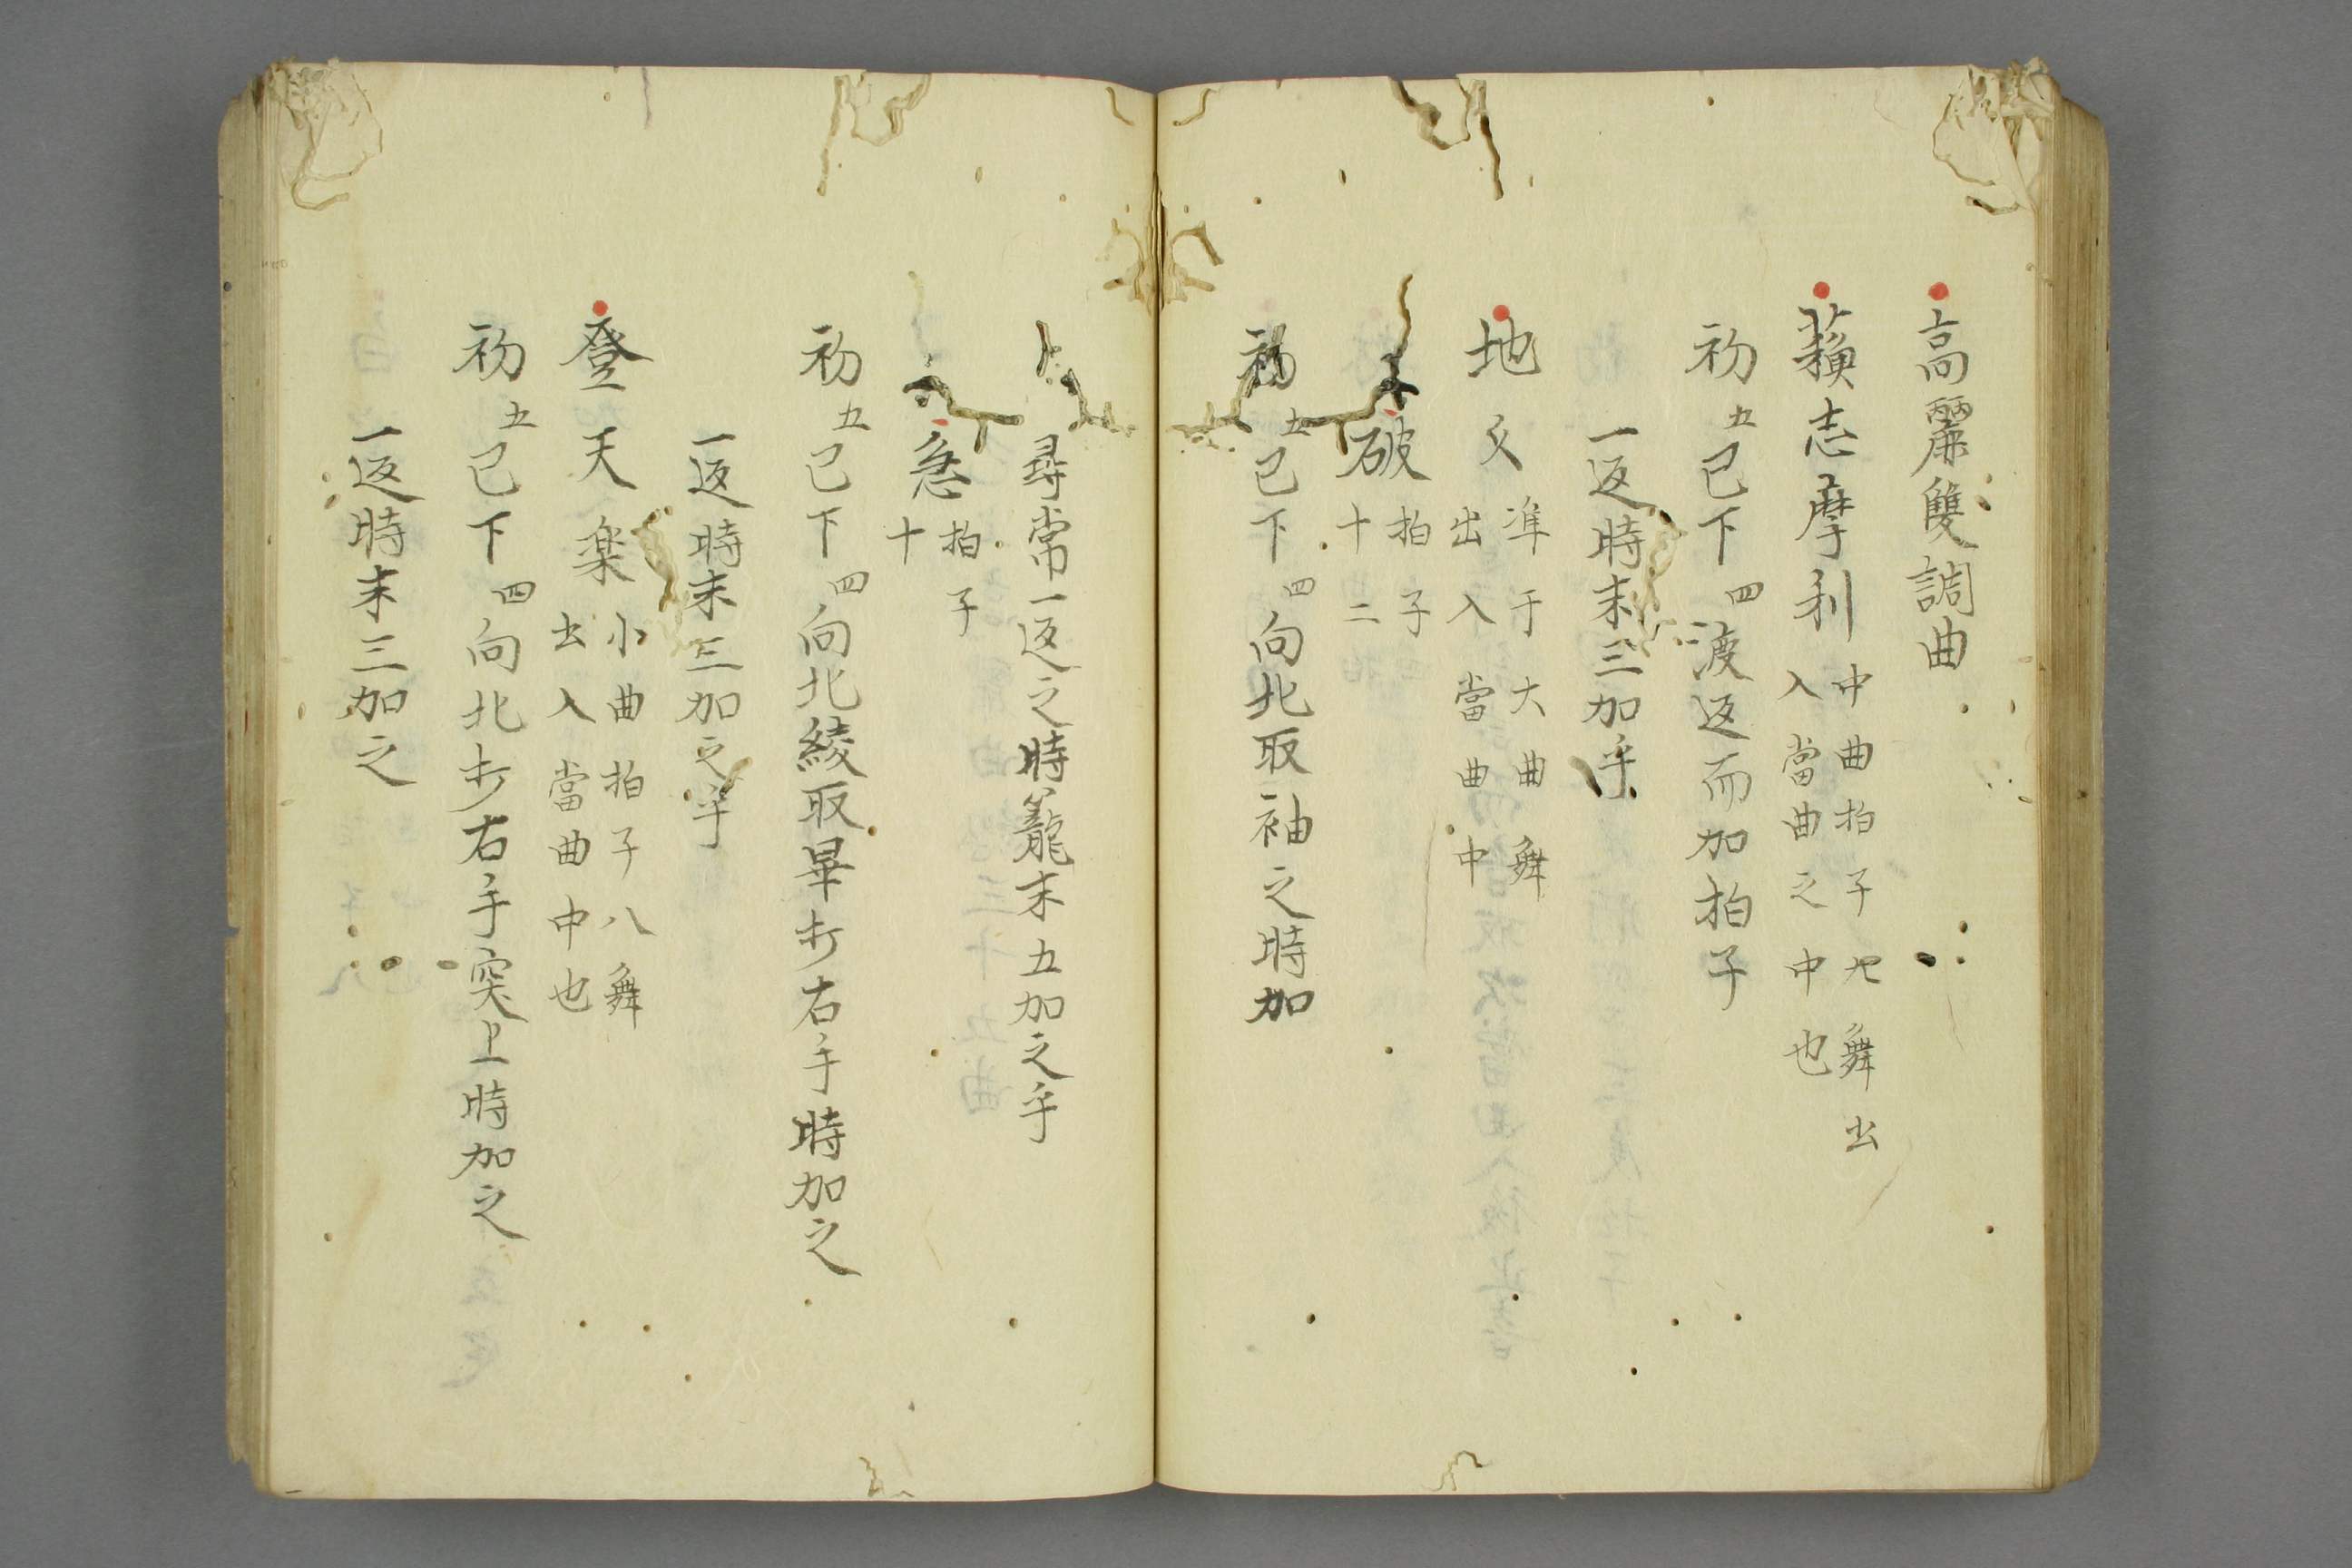 高麗雙調曲
蘓志摩利 中曲拍子七舞出
入當曲之中也
初五已下四渡返而加拍子
一返時末三加乎
地久 准于大曲舞
出入當曲中
破 拍子
十二
初五已下四向北取袖之時加
尋常一返之時籠末五加之乎
急 拍子
十
初五已下四向北綾取畢步右手時加之
一返時末三加之乎
登天楽 小曲拍子八舞
出入當曲中也
初五已下四向北步右手突上時加之
一返時末三加之